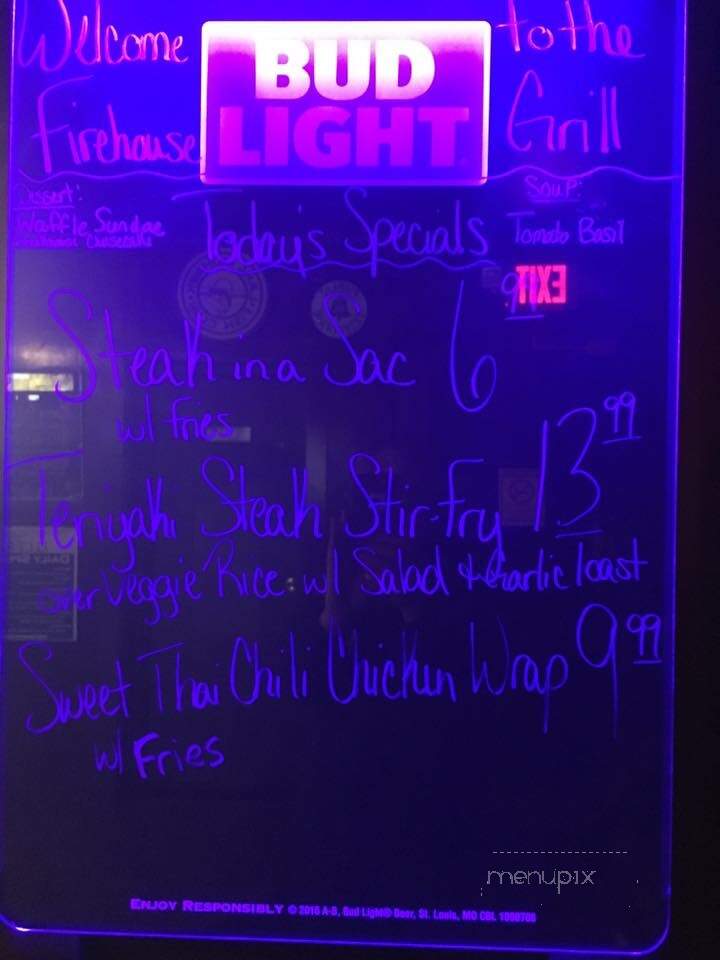 Welcome to the
BUD LIGHT
Firehouse Grill
Dessert:
Waffle Sundae
Soup:
Tomato Basil
Today's Specials
EXIT
Steak in a Sac 6 99
w/ fries
Teriyaki Steak Stir-fry 13 99
over Veggie Rice w/ Salad & Garlic Toast
Sweet Thai Chili Chicken Wrap 9 99
w/ Fries
menupix
ENJOY RESPONSIBLY © 2016 A-B, Bud Light® Beer, St. Louis, MO